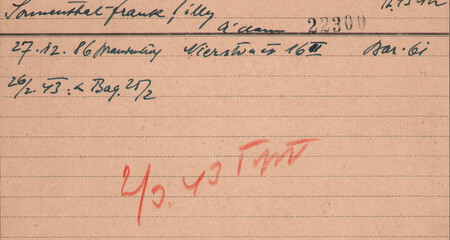 Sonnenthal-Frank, Tilly
A'dam 22300
27.12.86 Brandenburg Nierstraat 16 II Bar. 61
26/2.43: < Bag. 25/2
2/3.43